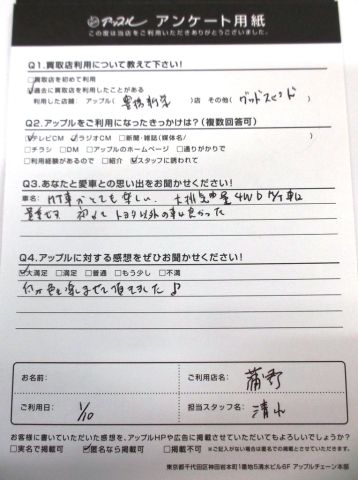 アップル アンケート用紙
この度は当店をご利用いただきありがとうございました。
Q1.買取店利用について教えて下さい!
□買取店を初めて利用
☑過去に買取店を利用したことがある
利用した店舗: アップル( )店 その他( グッドスピード )
Q2.アップルをご利用になったきっかけは?(複数回答可)
☑テレビCM ☑ラジオCM □新聞・雑誌(媒体名/ )
□チラシ □DM □アップルのホームページ □通りがかりで
□利用経験があるので □紹介 ☑スタッフに誘われて
Q3.あなたと愛車との思い出をお聞かせください!
車名: MT車がとても楽しい。大排気量4WD
初めてトヨタ以外の車に良かった
Q4.アップルに対する感想をぜひお聞かせください!
☑大満足 □満足 □普通 □もう少し □不満
楽しませて頂きました♪
お名前:
ご利用店名: 蒲野
ご利用日: 1/10
担当スタッフ名: 清水
お客様に書いていただいた感想を、アップルHPや広告に掲載させていただいてもよろしいでしょうか?
□実名で掲載可 ☑匿名なら掲載可 □掲載不可 ※ご記入がない場合は匿名での掲載とさせていただきます。
東京都千代田区神田岩本町1番地5清水ビル6F アップルチェーン本部